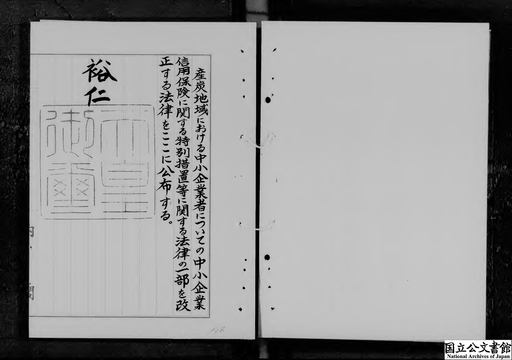 産炭地域における中小企業者についての中小企業
信用保険に関する特別措置等に関する法律の一部を改
正する法律をここに公布する。
裕仁
天皇
御璽
国立公文書館
National Archives of Japan